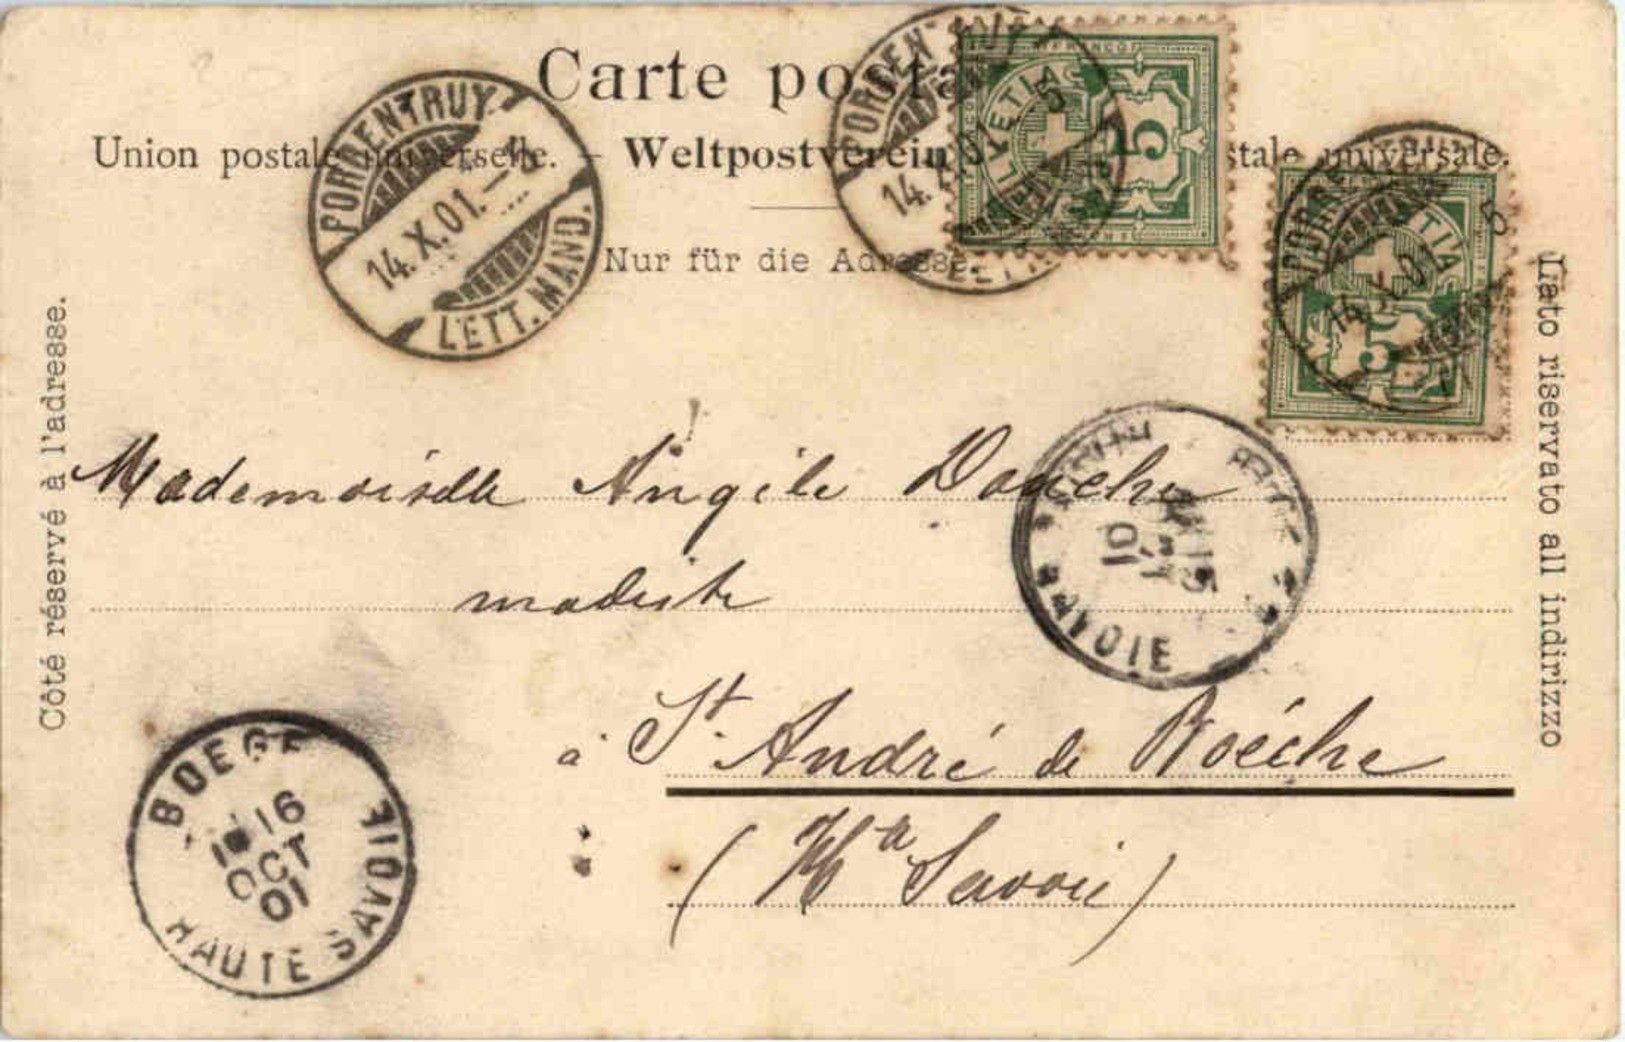 Carte
Union postale universelle. – Weltpostverein stale universale.
Nur für die Adresse.
Côté réservé à l'adresse.
Lato riservato all indirizzo
PORRENTRUY
14.X.01.
LETT. MAND.
PORREN
14.
FRANCO
HELVETIA
5
FRANCO
5
14.X.0
Mademoiselle Angèle
modiste
à St. André de Boëche
(Hte Savoie)
15
01
SAVOIE
BOEGE
16
OCT
01
HAUTE SAVOIE